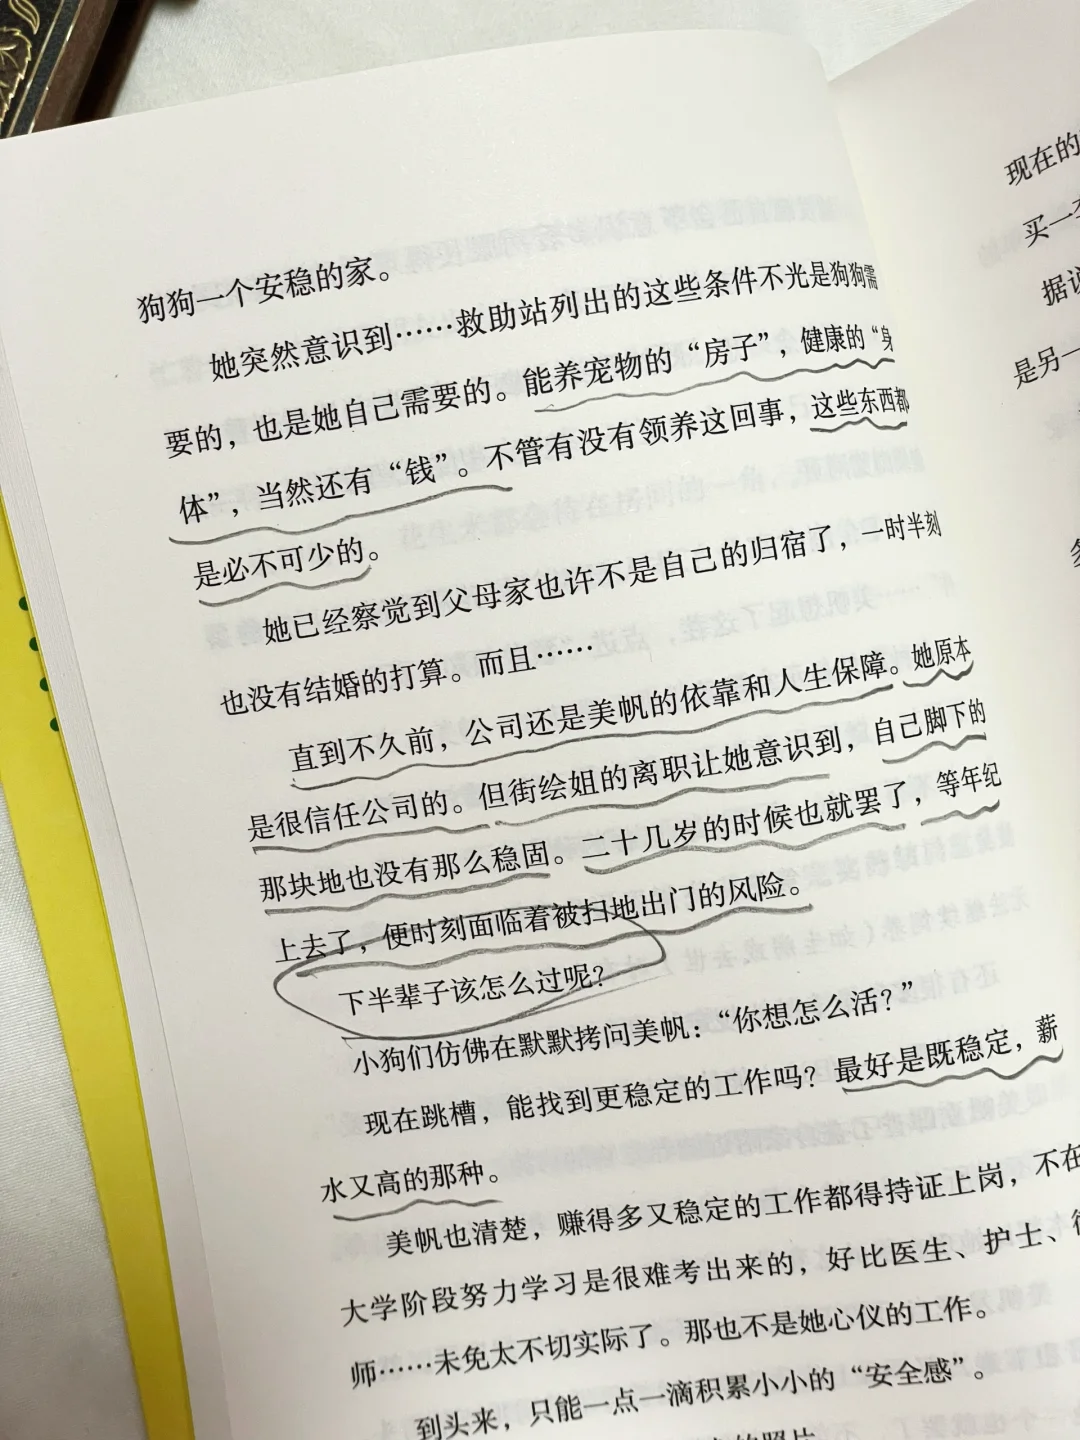 狗狗一个安稳的家。
她突然意识到……救助站列出的这些条件不光是狗狗需
要的，也是她自己需要的。能养宠物的“房子”，健康的“身
体”，当然还有“钱”。不管有没有领养这回事，这些东西都
是必不可少的。
她已经察觉到父母家也许不是自己的归宿了，一时半刻
也没有结婚的打算。而且……
直到不久前，公司还是美帆的依靠和人生保障。她原本
是很信任公司的。但街绘姐的离职让她意识到，自己脚下的
那块地也没有那么稳固。二十几岁的时候也就罢了，等年纪
上去了，便时刻面临着被扫地出门的风险。
下半辈子该怎么过呢？
小狗们仿佛在默默拷问美帆：“你想怎么活？”
现在跳槽，能找到更稳定的工作吗？最好是既稳定，薪
水又高的那种。
美帆也清楚，赚得多又稳定的工作都得持证上岗，不在
大学阶段努力学习是很难考出来的，好比医生、护士、
师……未免太不切实际了。那也不是她心仪的工作。
到头来，只能一点一滴积累小小的“安全感”。
的照片
现在的
买一
据说
是另一